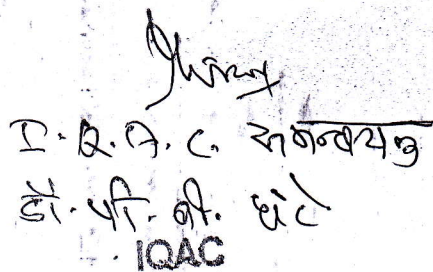 I.Q.A.C. समन्वयक
डॉ. पी. बी. घंटे
IQAC